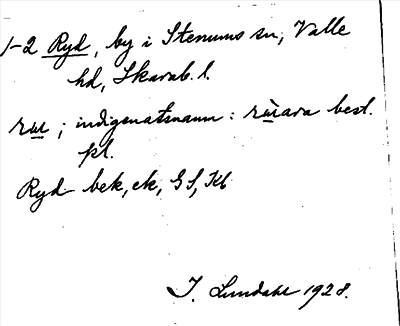 1-2 Ryd, by i Stenums sn, Valle
hd, Skarab. l.
ru; indigenatsnamn: ruara best.
pl.
Ryd bek, ek, GS, Kb
I. Lundahl 1928.